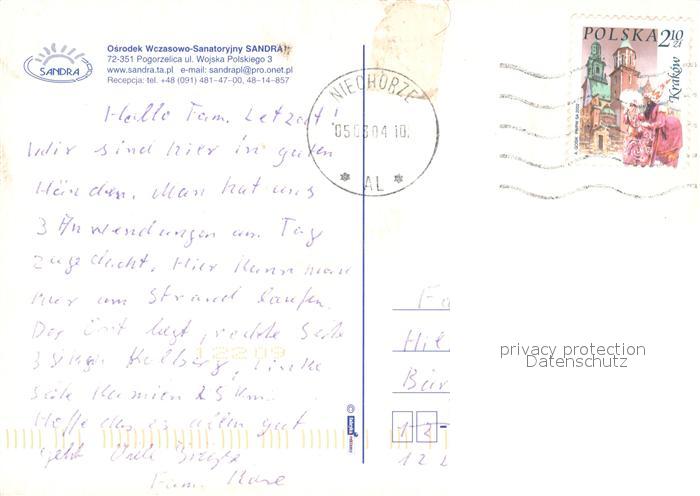 SANDRA
Ośrodek Wczasowo-Sanatoryjny SANDRA
72-351 Pogorzelica ul. Wojska Polskiego 3
www.sandra.ta.pl e-mail: sandrapl@pro.onet.pl
Recepcja: tel. +48 (091) 481-47-00, 48-14-857
POLSKA 2,10 zł
Kraków
NIECHORZE
050804 10
* AL *
Hallo Fam. Letzat!
Wir sind hier in guten
Händen. Man hat uns
3 Anwendungen am Tag
zugedacht. Hier kann man
nur am Strand laufen.
Der Ort liegt, rechte Seite
Kolberg, linke
Seite Kamien 25 Km.
Hoffe das es allen gut
geht
Fam.
12209
Fa
Hil
Bür
12-
12
privacy protection
Datenschutz